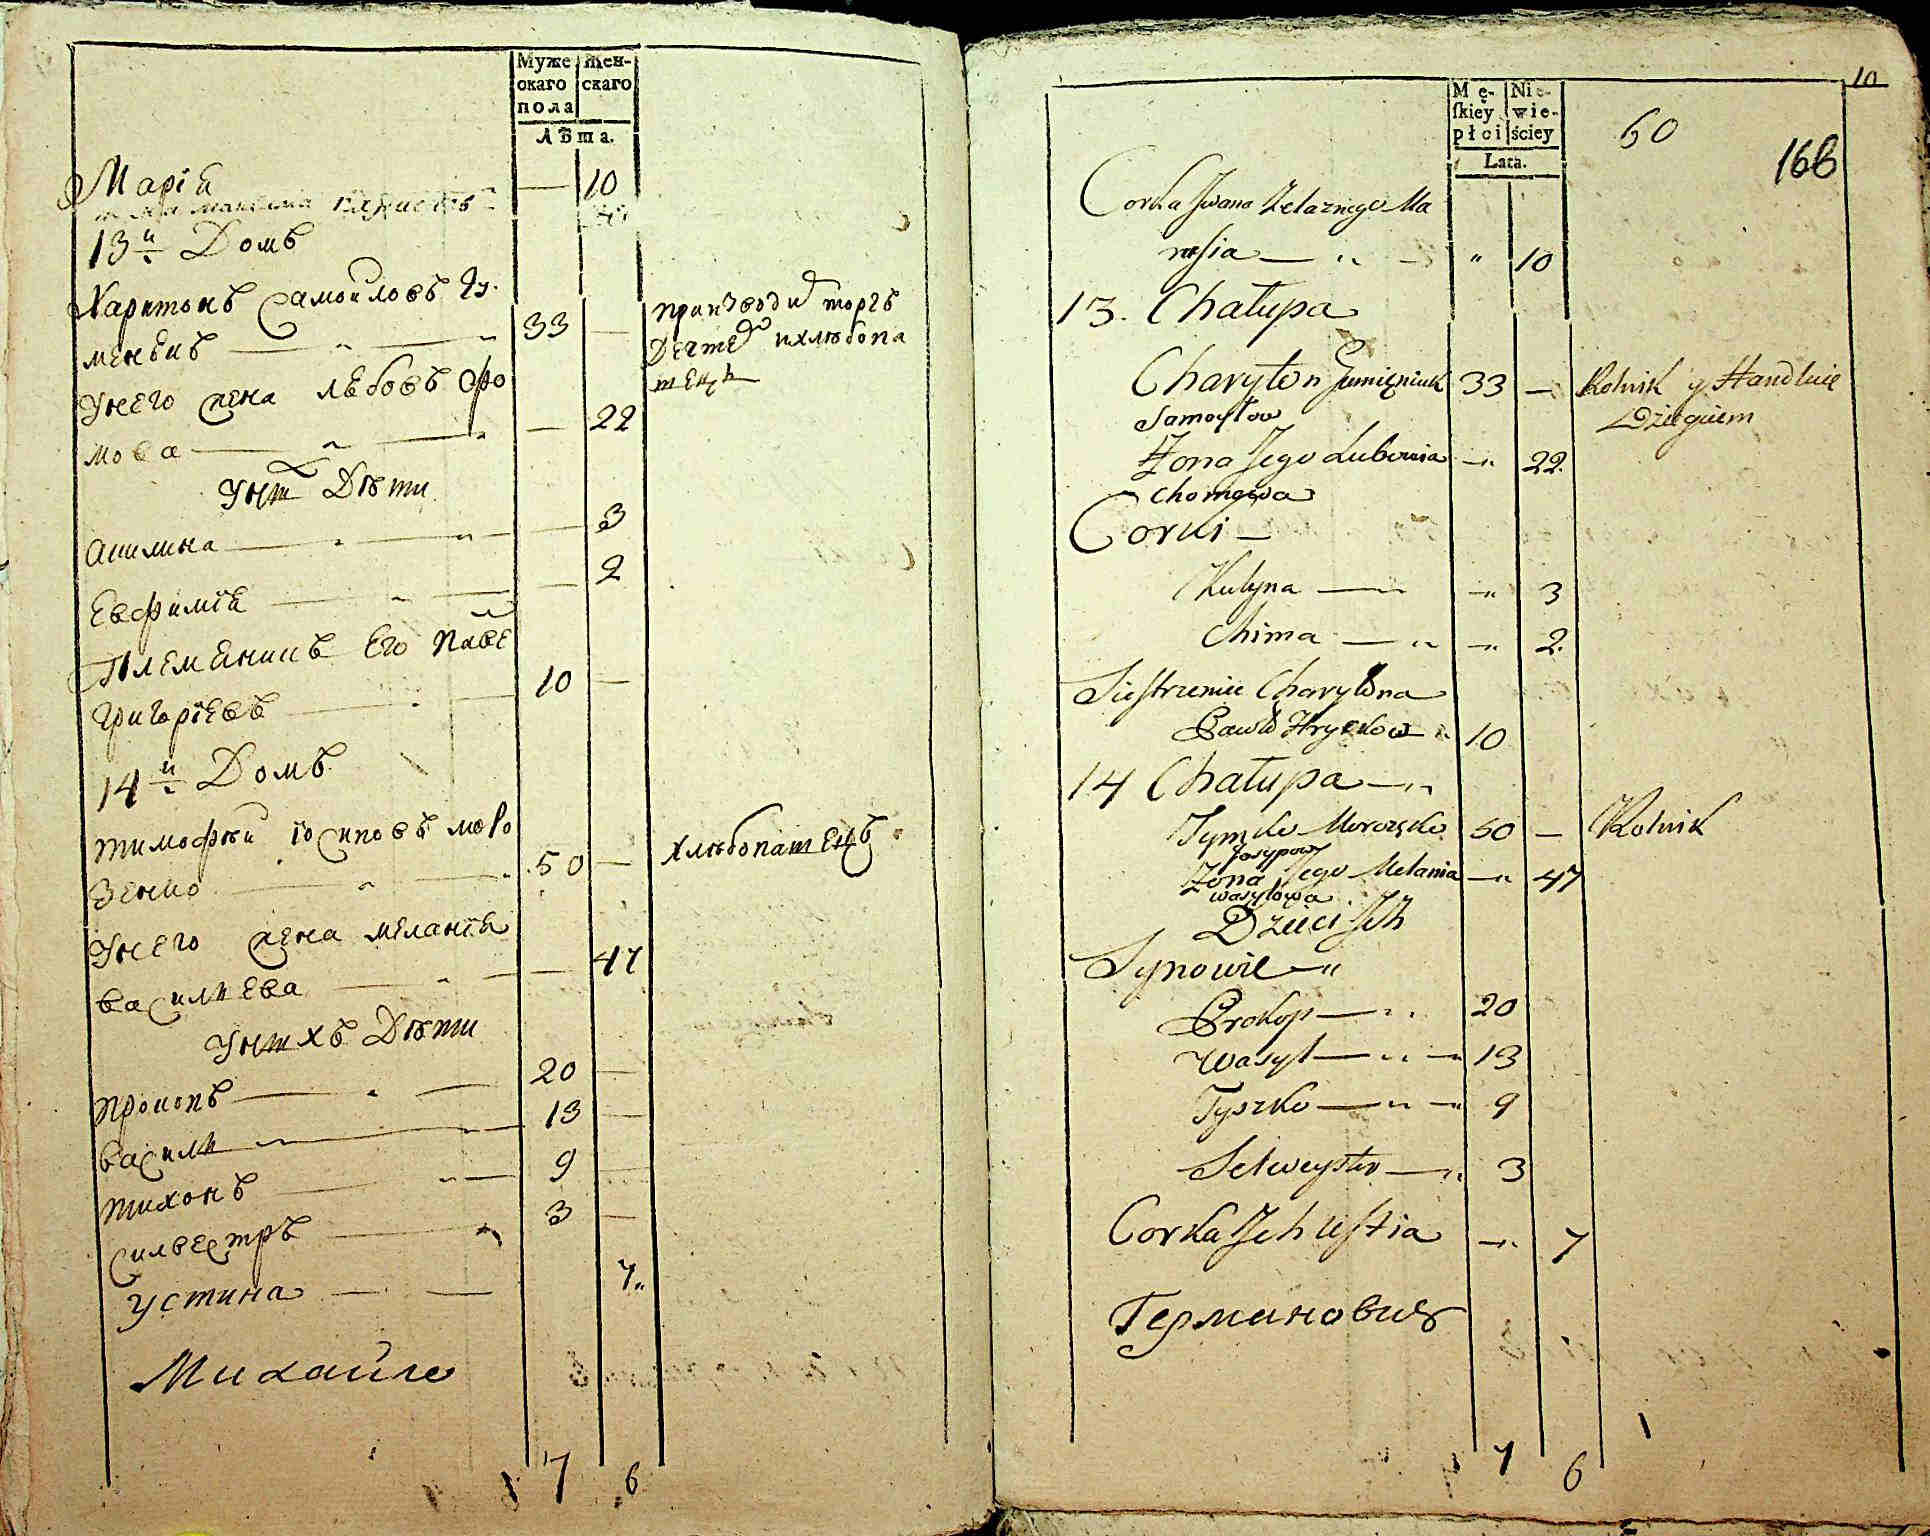 Муже
скаго
пола
Жен-
скаго
Лѣта.
Марїа — 10
13й Домъ
Харитонъ Самойловъ Гу-
менюкъ — " — " 33 — производи торгъ
Дегте ихлѣбопа
шецъ
Унего жена Лѣбовъ Фо
мова — " — " — 22
Унихъ Дѣти
Акилина — " — " — 3
Евфимїа — " — — 2
Племѣникъ Его Паве
Григорїевъ — " — 10 —
14й Домъ
Тимофѣй їосиповъ Моро
зенко — " — " 50 — хлѣбопашецъ
Унего жена Меланїа
василиева — " — — 47
Унихъ Дѣти
Прокопъ — " — 20 —
васили — " — " — 13 —
тихонъ — " — 9
силвестръ — " 3 —
устина — — 7"
Михайло
1 7 6
10
Mę-
ſkiey
płci
Nie-
wie-
ściey
Lata.
60
166
Corka Jwana Zelaznego Ma
rusia — " — " 10
13. Chałupa
Charyton Jumięniuk 33 — Rolnik y Handluie
Samoyłow Dziegciem
Żona Jego Lubowia — " 22
Chomowa
Corki —
Kulyna — " — " 3
Chima — " — " 2
Siestrzeniec Charytona
Pawło Hryckow " 10
14 Chałupa — "
Tymko Morozęko 50 — Rolnik
Josypow
Żona Jego Melania — " 47
Wasylowa
Dzieci Jch
Synowie — "
Prokop — " 20
Wasyl — " — 13
Tyszko — " — " 9
Selweyster — " 3
Corka Jch Ustia — " 7
Германович
1 7 6